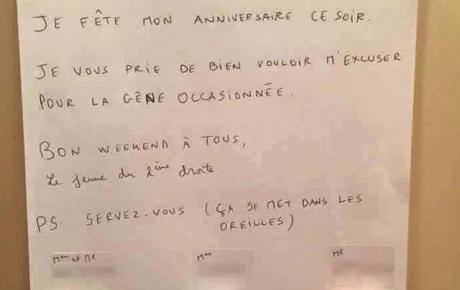 JE FÊTE MON ANNIVERSAIRE CE SOIR.
JE VOUS PRIE DE BIEN VOULOIR M'EXCUSER
POUR LA GÈNE OCCASIONNÉE.
BON WEEKEND À TOUS,
Le jeune du 2ème droite
PS SERVEZ-VOUS (ÇA SE MET DANS LES
OREILLES)
Mme et MR
Mme
MR